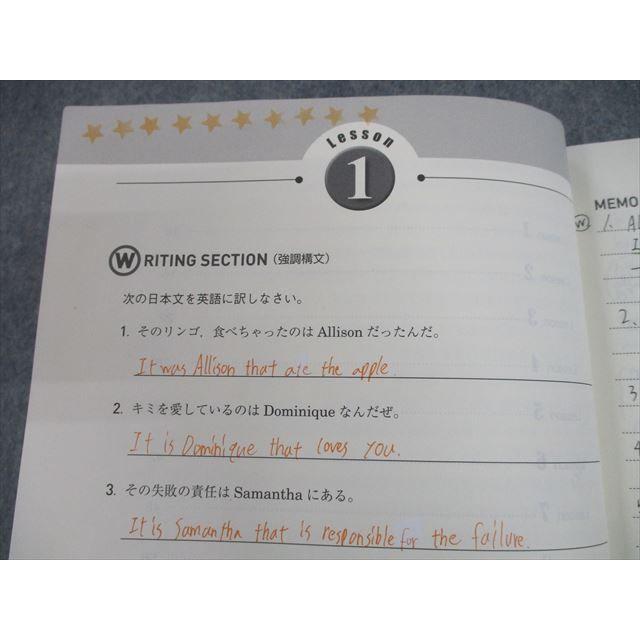 Lesson
1
WRITING SECTION (強調構文)
次の日本文を英語に訳しなさい。
1. そのリンゴ，食べちゃったのは Allison だったんだ。
It was Allison that ate the apple.
2. キミを愛しているのは Dominique なんだぜ。
It is Dominique that loves you.
3. その失敗の責任は Samantha にある。
It is Samantha that is responsible for the failure.
MEMO
W 1. Al
I
2、
3